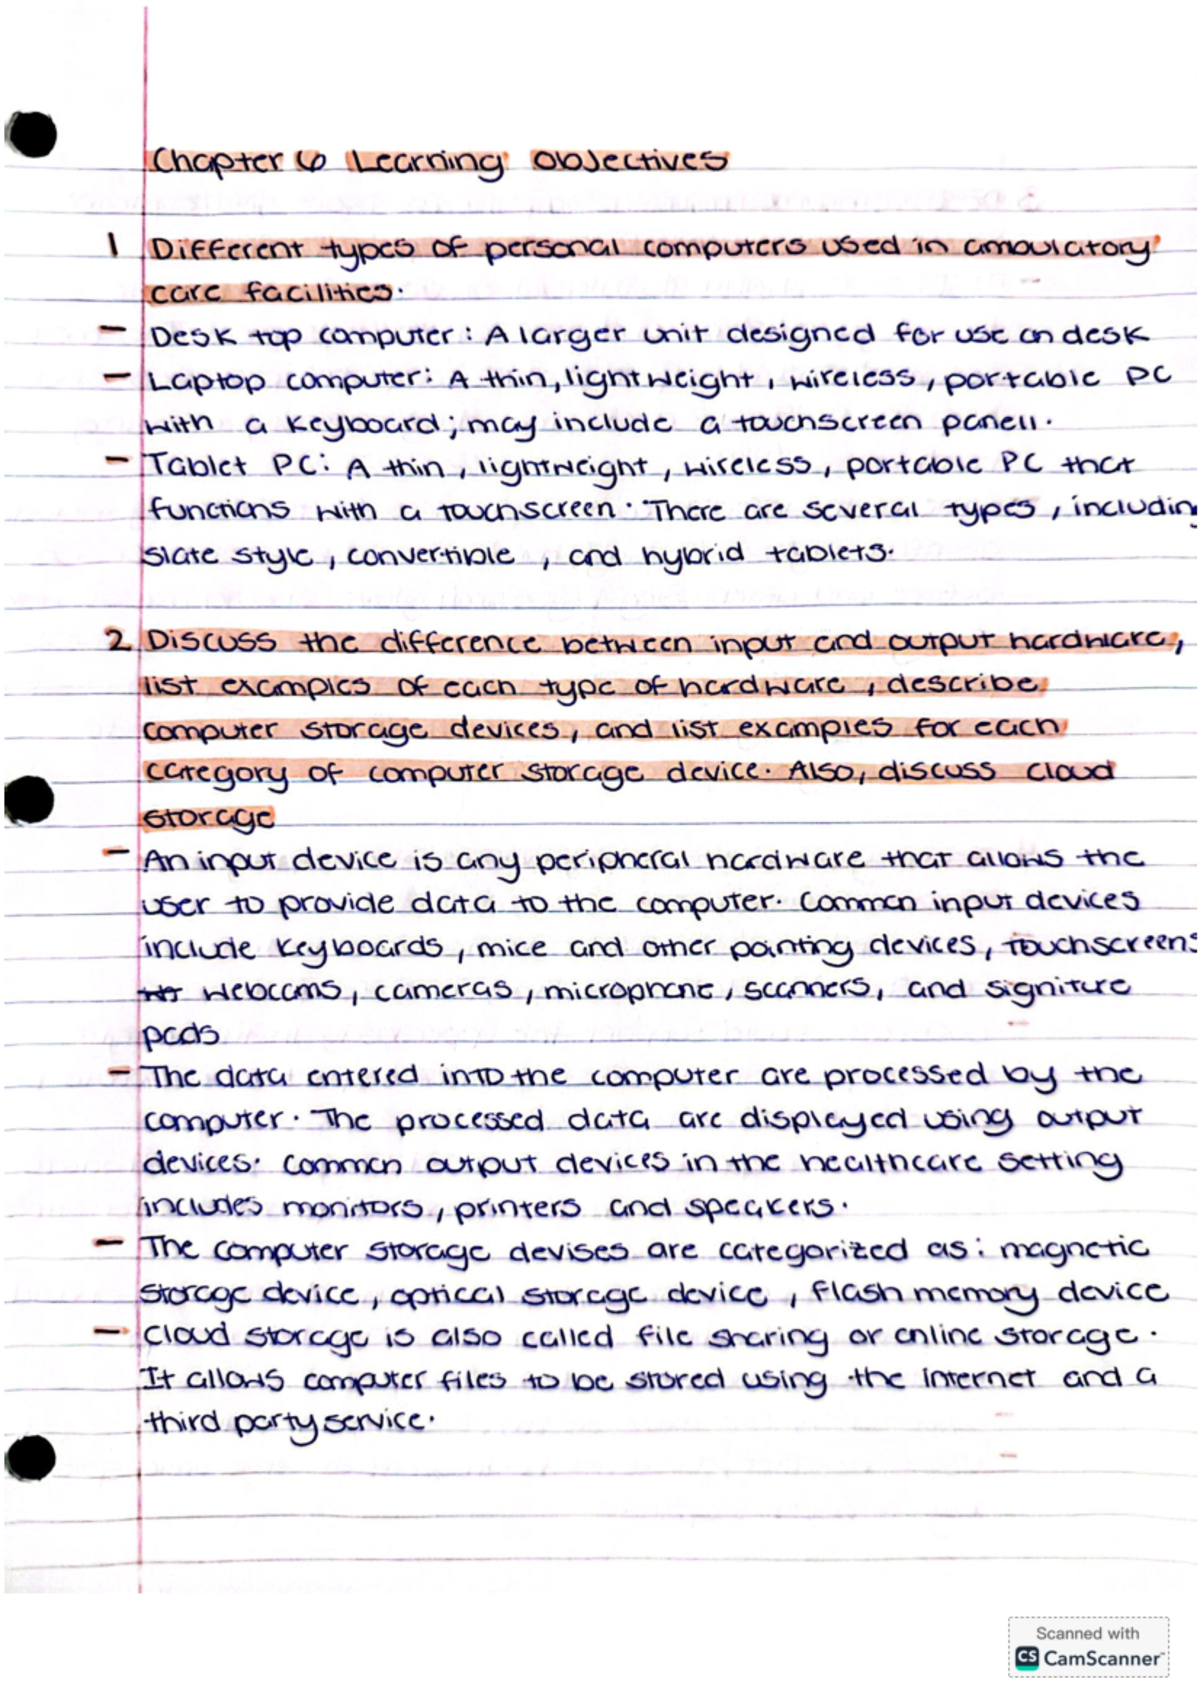 Chapter 6 Learning Objectives
1 Different types of personal computers used in ambulatory
care facilities.
- Desk top computer: A larger unit designed for use on desk
- Laptop computer: A thin, lightweight, wireless, portable PC
with a keyboard; may include a touchscreen panell.
- Tablet PC: A thin, lightweight, wireless, portable PC that
functions with a touchscreen. There are several types, including
slate style, convertible, and hybrid tablets.
2 Discuss the difference between input and output hardware,
list examples of each type of hardware, describe
computer storage devices, and list examples for each
category of computer storage device. Also, discuss cloud
storage
- An input device is any peripheral hardware that allows the
user to provide data to the computer. Common input devices
include keyboards, mice and other pointing devices, touchscreens
webcams, cameras, microphone, scanners, and signiture
pads
- The data entered into the computer are processed by the
computer. The processed data are displayed using output
devices. Common output devices in the healthcare setting
includes monitors, printers and speakers.
- The computer storage devises are categorized as: magnetic
storage device, optical storage device, flash memory device
- Cloud storage is also called file sharing or online storage.
It allows computer files to be stored using the internet and a
third party service.
Scanned with
CS CamScanner